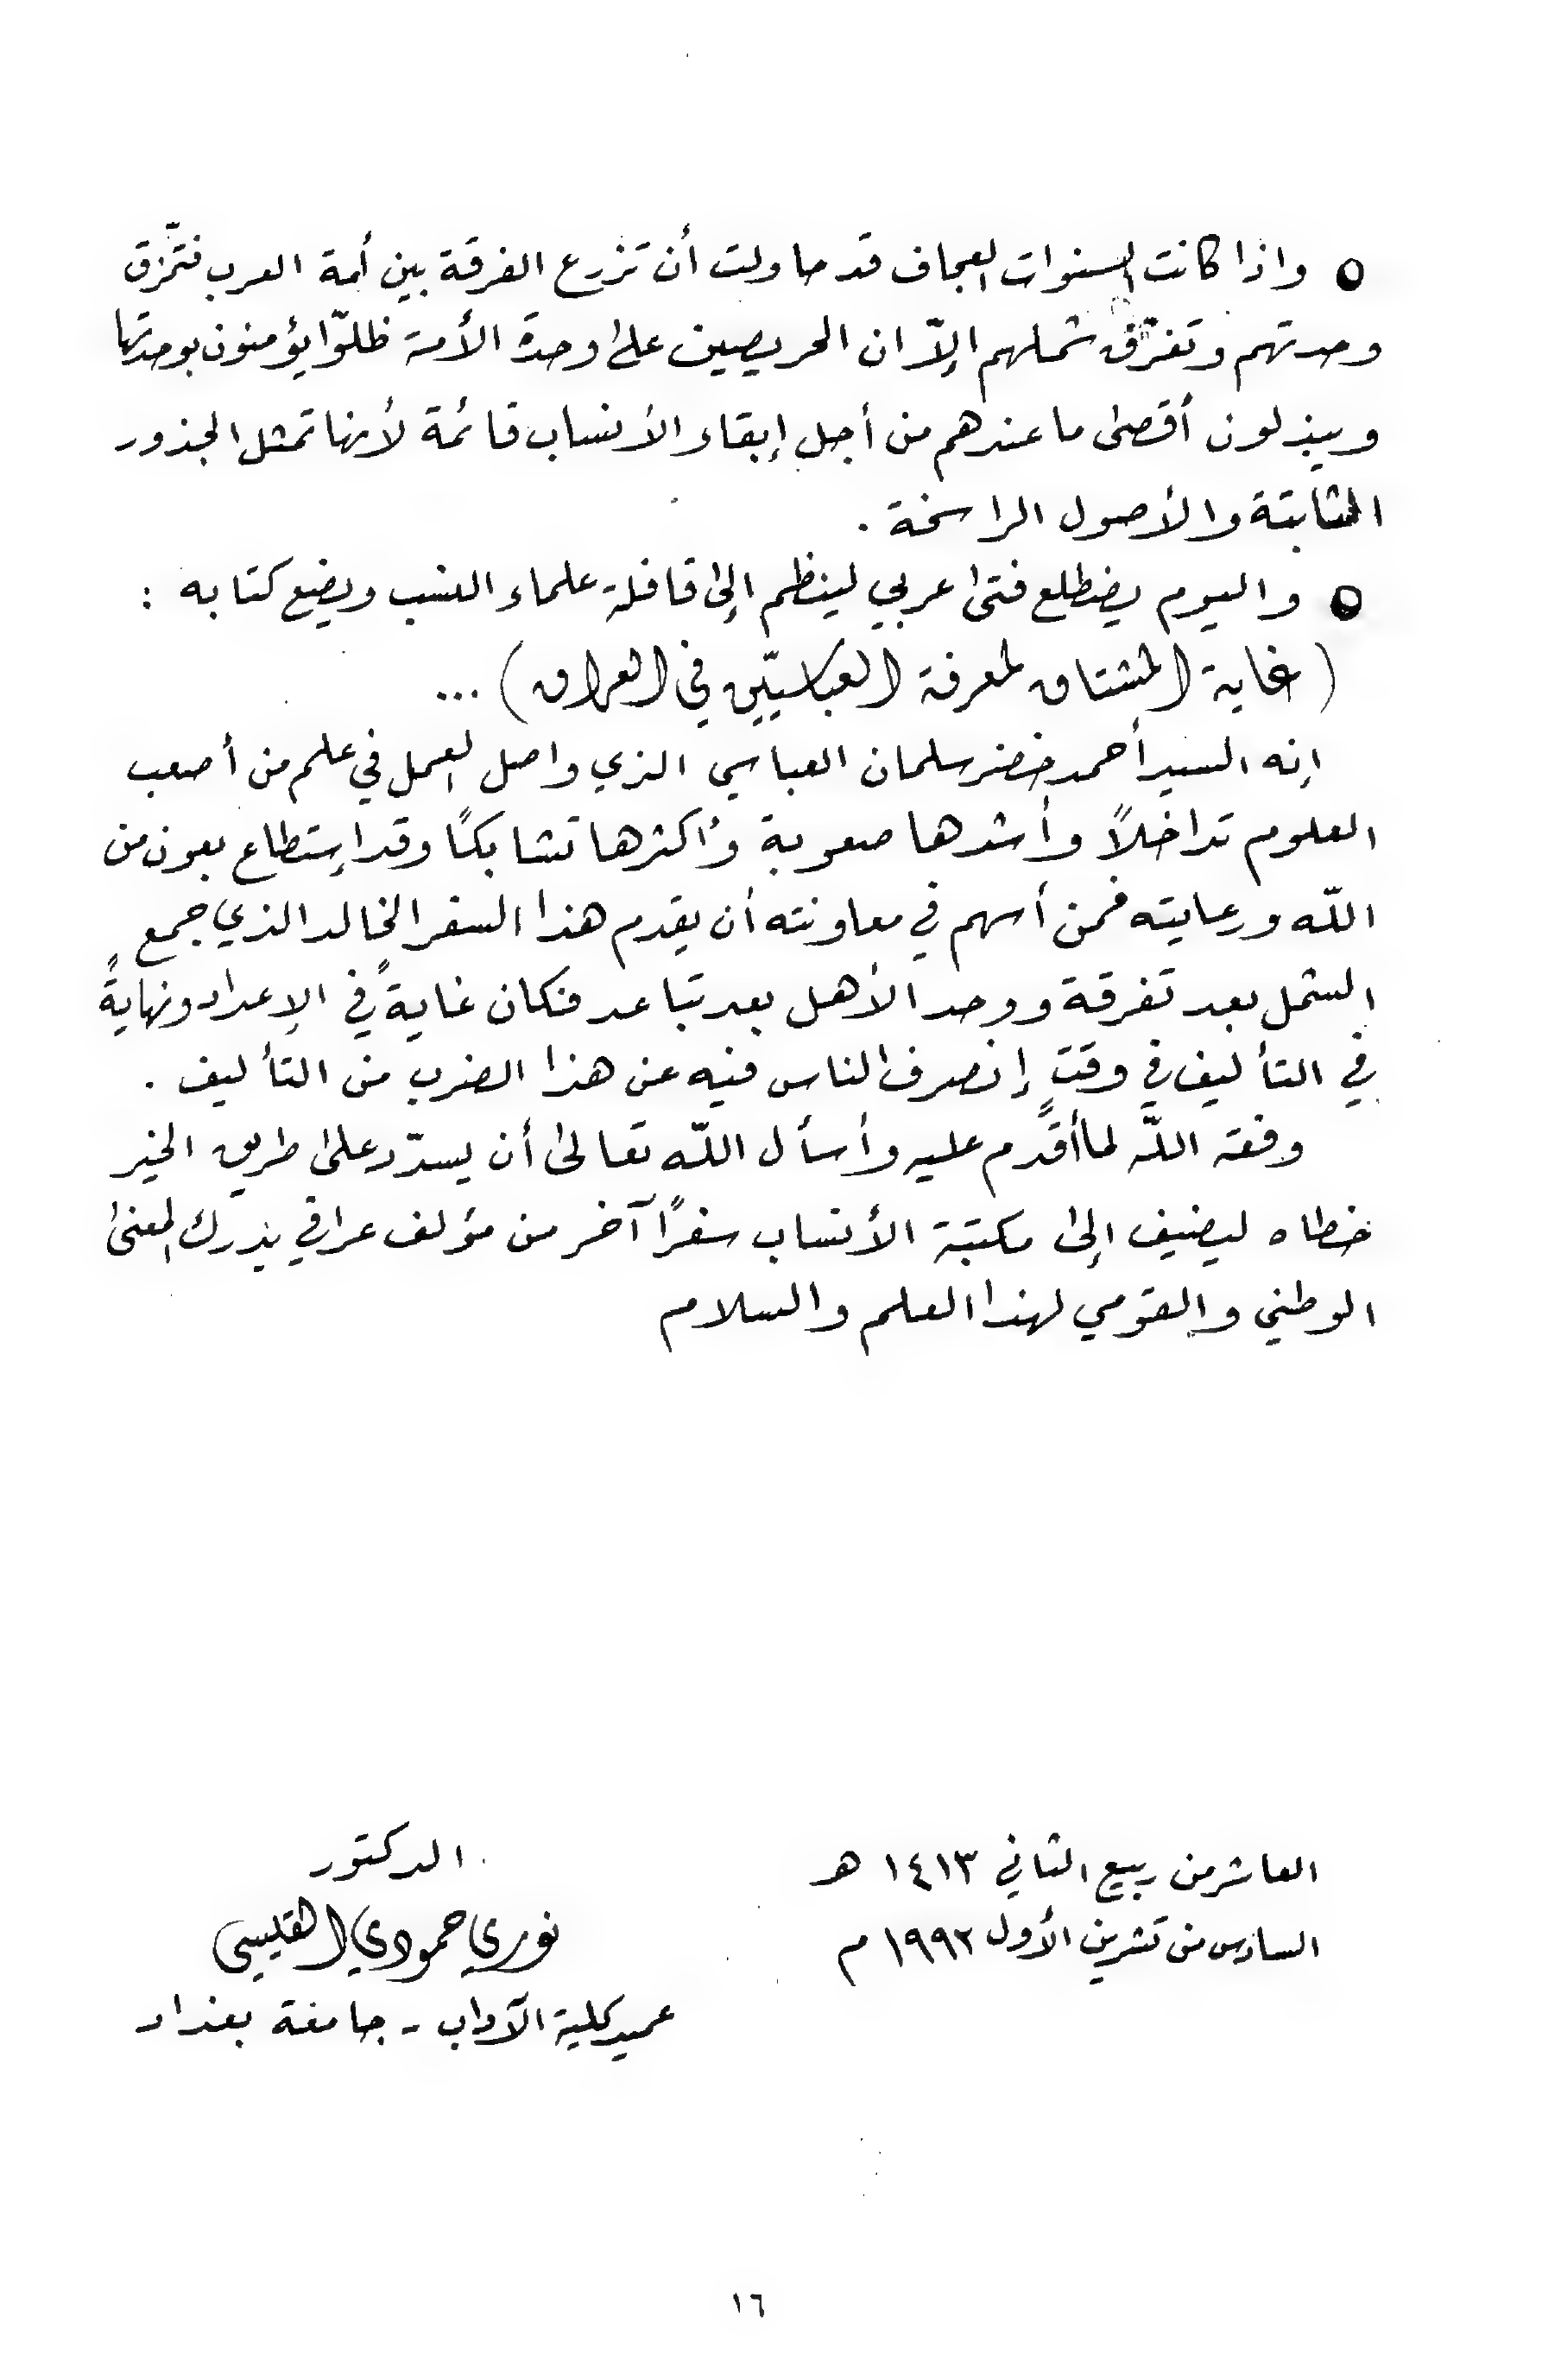 ○ واذا كانت السنوات العجاف قد حاولت أن تزرع الفرقة بين أمة العرب فتمّزق
وحدتهم وتفرّق شملهم إلاّ ان الحريصين على وحدة الأمة ظلوّا يؤمنون بوحدتها
ويبذلون أقصى ما عندهم من أجل إبقاء الأنساب قائمة لأنها تمثل الجذور
الثابتة والأصول الراسخة .
○ واليوم يضطلع فتى عربي لينظم إلى قافلة علماء النسب ويضع كتابه :
( غاية المشتاق لمعرفة العباسيّين في العراق ) ...
إنه السيد أحمد خضر سلمان العباسي الذي واصل العمل في علم من أصعب
العلوم تداخلاً وأشدها صعوبة وأكثرها تشابكًا وقد إستطاع بعون من
اللّه ورعايته فمن أسهم في معاونته أن يقدم هذا السفر الخالد الذي جمع
الشمل بعد تفرقة ووحد الأهل بعد تباعد فكان غايةً في الإعداد ونهايةً
في التأليف في وقتٍ إنصرف الناس فيه عن هذا الضرب من التأليف .
وفقه اللّه لما أقدم عليه وأسأل اللّه تعالى أن يسدّد على طريق الخير
خطاه ليضيف إلى مكتبة الأنساب سفرًا آخر من مؤلف عراقي يدرك المعنى
الوطني والقومي لهذا العلم والسلام
العاشر من ربيع الثاني ١٤١٣ هـ
السادس من تشرين الأول ١٩٩٢ م
الدكتور
نوري حمودي القيسي
عميد كلية الآداب - جامعة بغداد
١٦